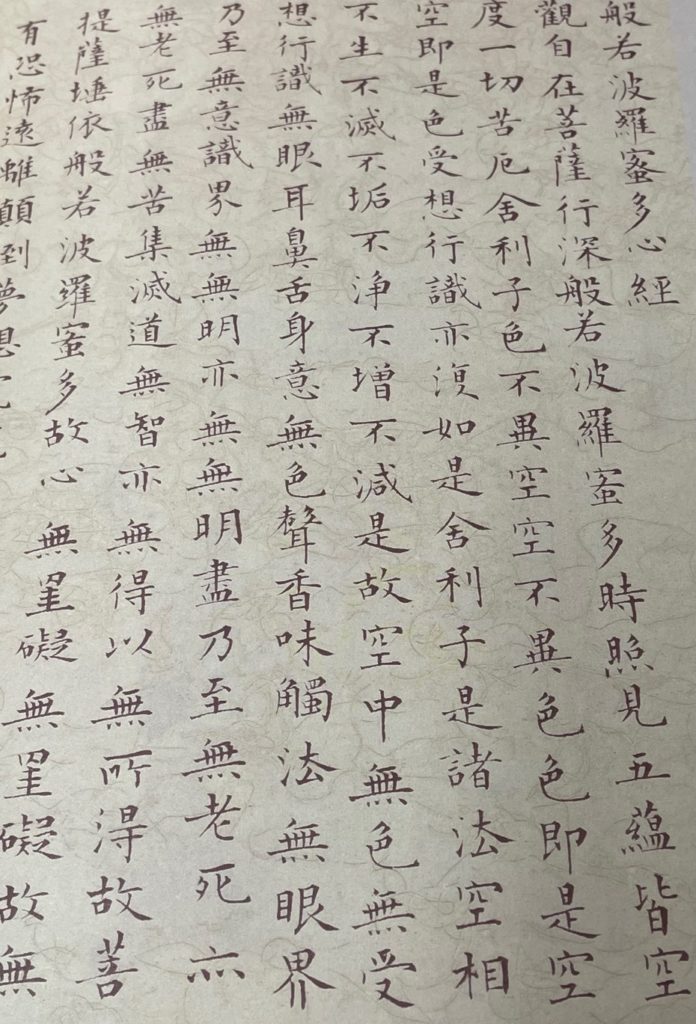 般若波羅蜜多心經
觀自在菩薩行深般若波羅蜜多時照見五蘊皆空
度一切苦厄舍利子色不異空空不異色色即是空
空即是色受想行識亦復如是舍利子是諸法空相
不生不滅不垢不淨不增不減是故空中無色無受
想行識無眼耳鼻舌身意無色聲香味觸法無眼界
乃至無意識界無無明亦無無明盡乃至無老死亦
無老死盡無苦集滅道無智亦無得以無所得故菩
提薩埵依般若波羅蜜多故心無罣礙無罣礙故無
有恐怖遠離顛倒夢想